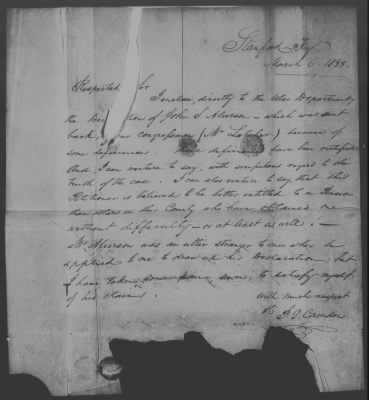 Stanford Ky
March 6, 1833.
Respected Sir
I enclose, directly to the War Department,
the Dec tion of John S. Alverson – which was sent
back, our congressman (Mr Letcher) because of
some deficiencies. have been rectified
And I can venture to say, with scrupulous regard to the
truth of the case. I can also venture to say that this
Petitioner is believed to be better entitled to a Pension
than others in this County who have obtained one
without difficulty – or at least as well. –
Mr Alverson was an utter stranger to me when he
applied to me to draw up his Declaration, but
I have taken some pains, since, to satisfy myself
of his Claims.
With much respect
Camden